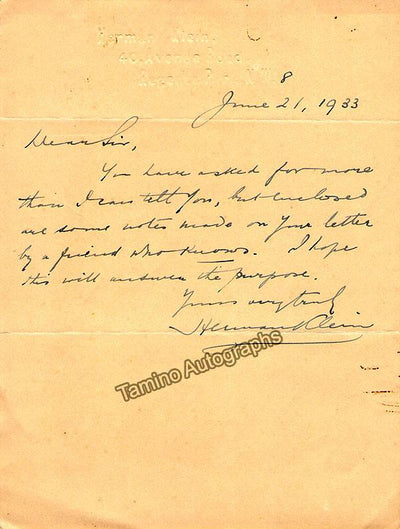 Herman Klein
40, Avenue Road
N.W.8
June 21, 1933
Dear Sir,
You have asked for more
than I can tell you, but enclosed
are some notes made on your letter
by a friend who knows. I hope
this will answer the purpose.
Yours very truly
Herman Klein
Tamino Autographs